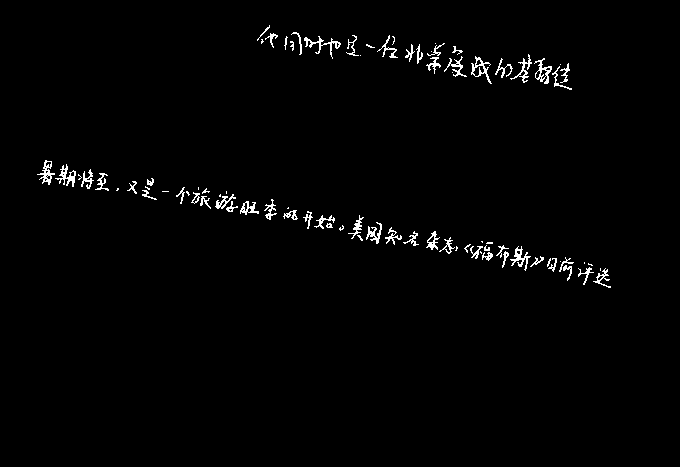 他同时也是一位非常虔诚的基督徒
暑期将至，又是一个旅游旺季的开始。美国知名杂志《福布斯》日前评选